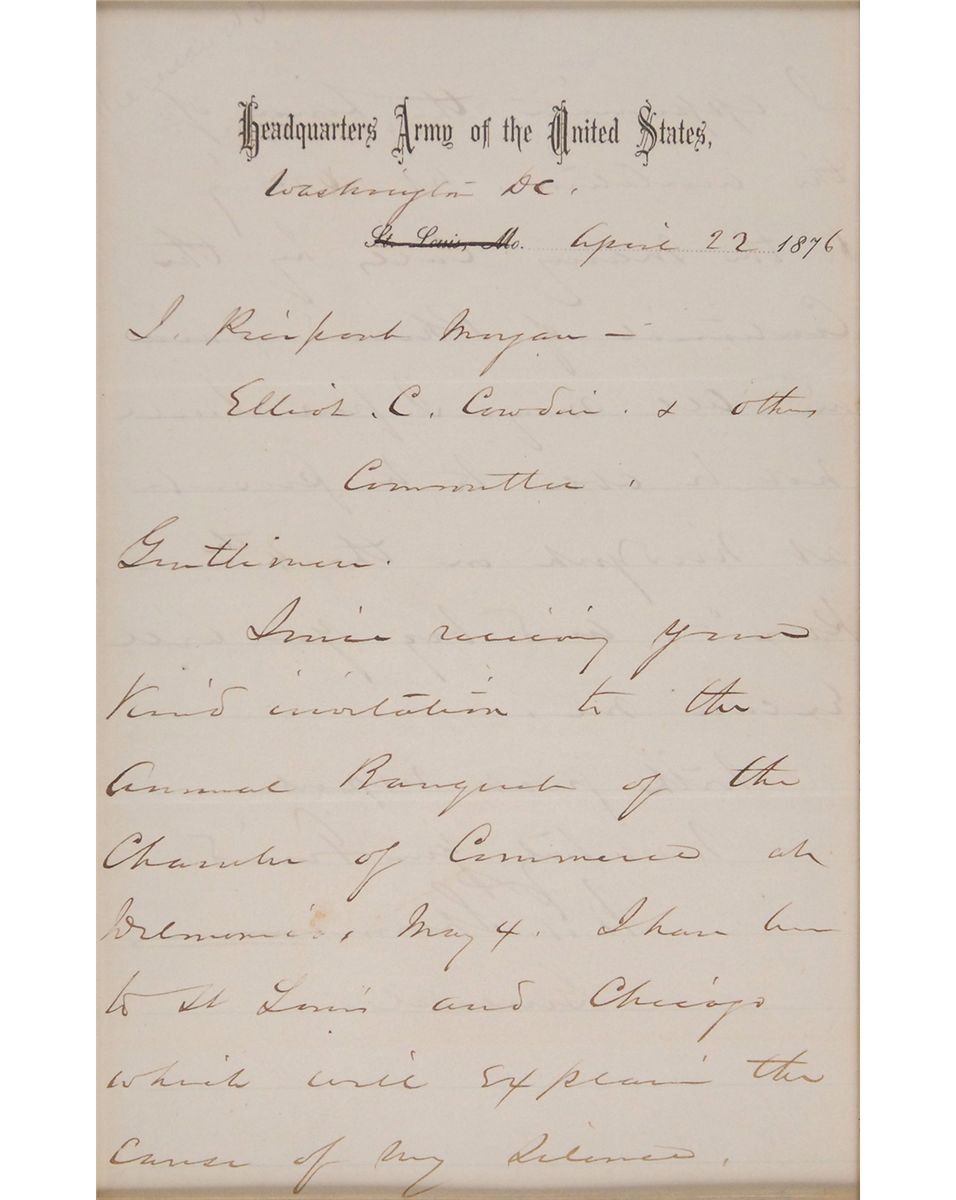 Headquarters Army of the United States,
Washington DC.
St. Louis, Mo. April 22 1876
J. Pierpont Morgan -
Elliot. C. Cowdin. & others
Committee.
Gentlemen.
Since receiving your
Kind invitation to the
Annual Banquet of the
Chamber of Commerce at
Delmonico's, May 4. I have been
to St Louis and Chicago
which will explain the
cause of my silence.